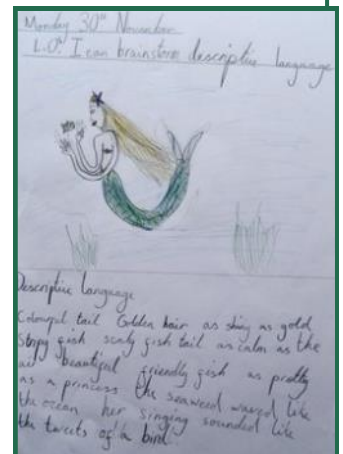 Monday 30th November
L.O: I can brainstorm descriptive language
Descriptive language
Colourful tail Golden hair as shiny as gold
Stripy fish scaly fish tail as calm as the
air beautiful friendly fish as pretty
as a princess the seaweed waved like
the ocean her singing sounded like
the tweets of a bird.